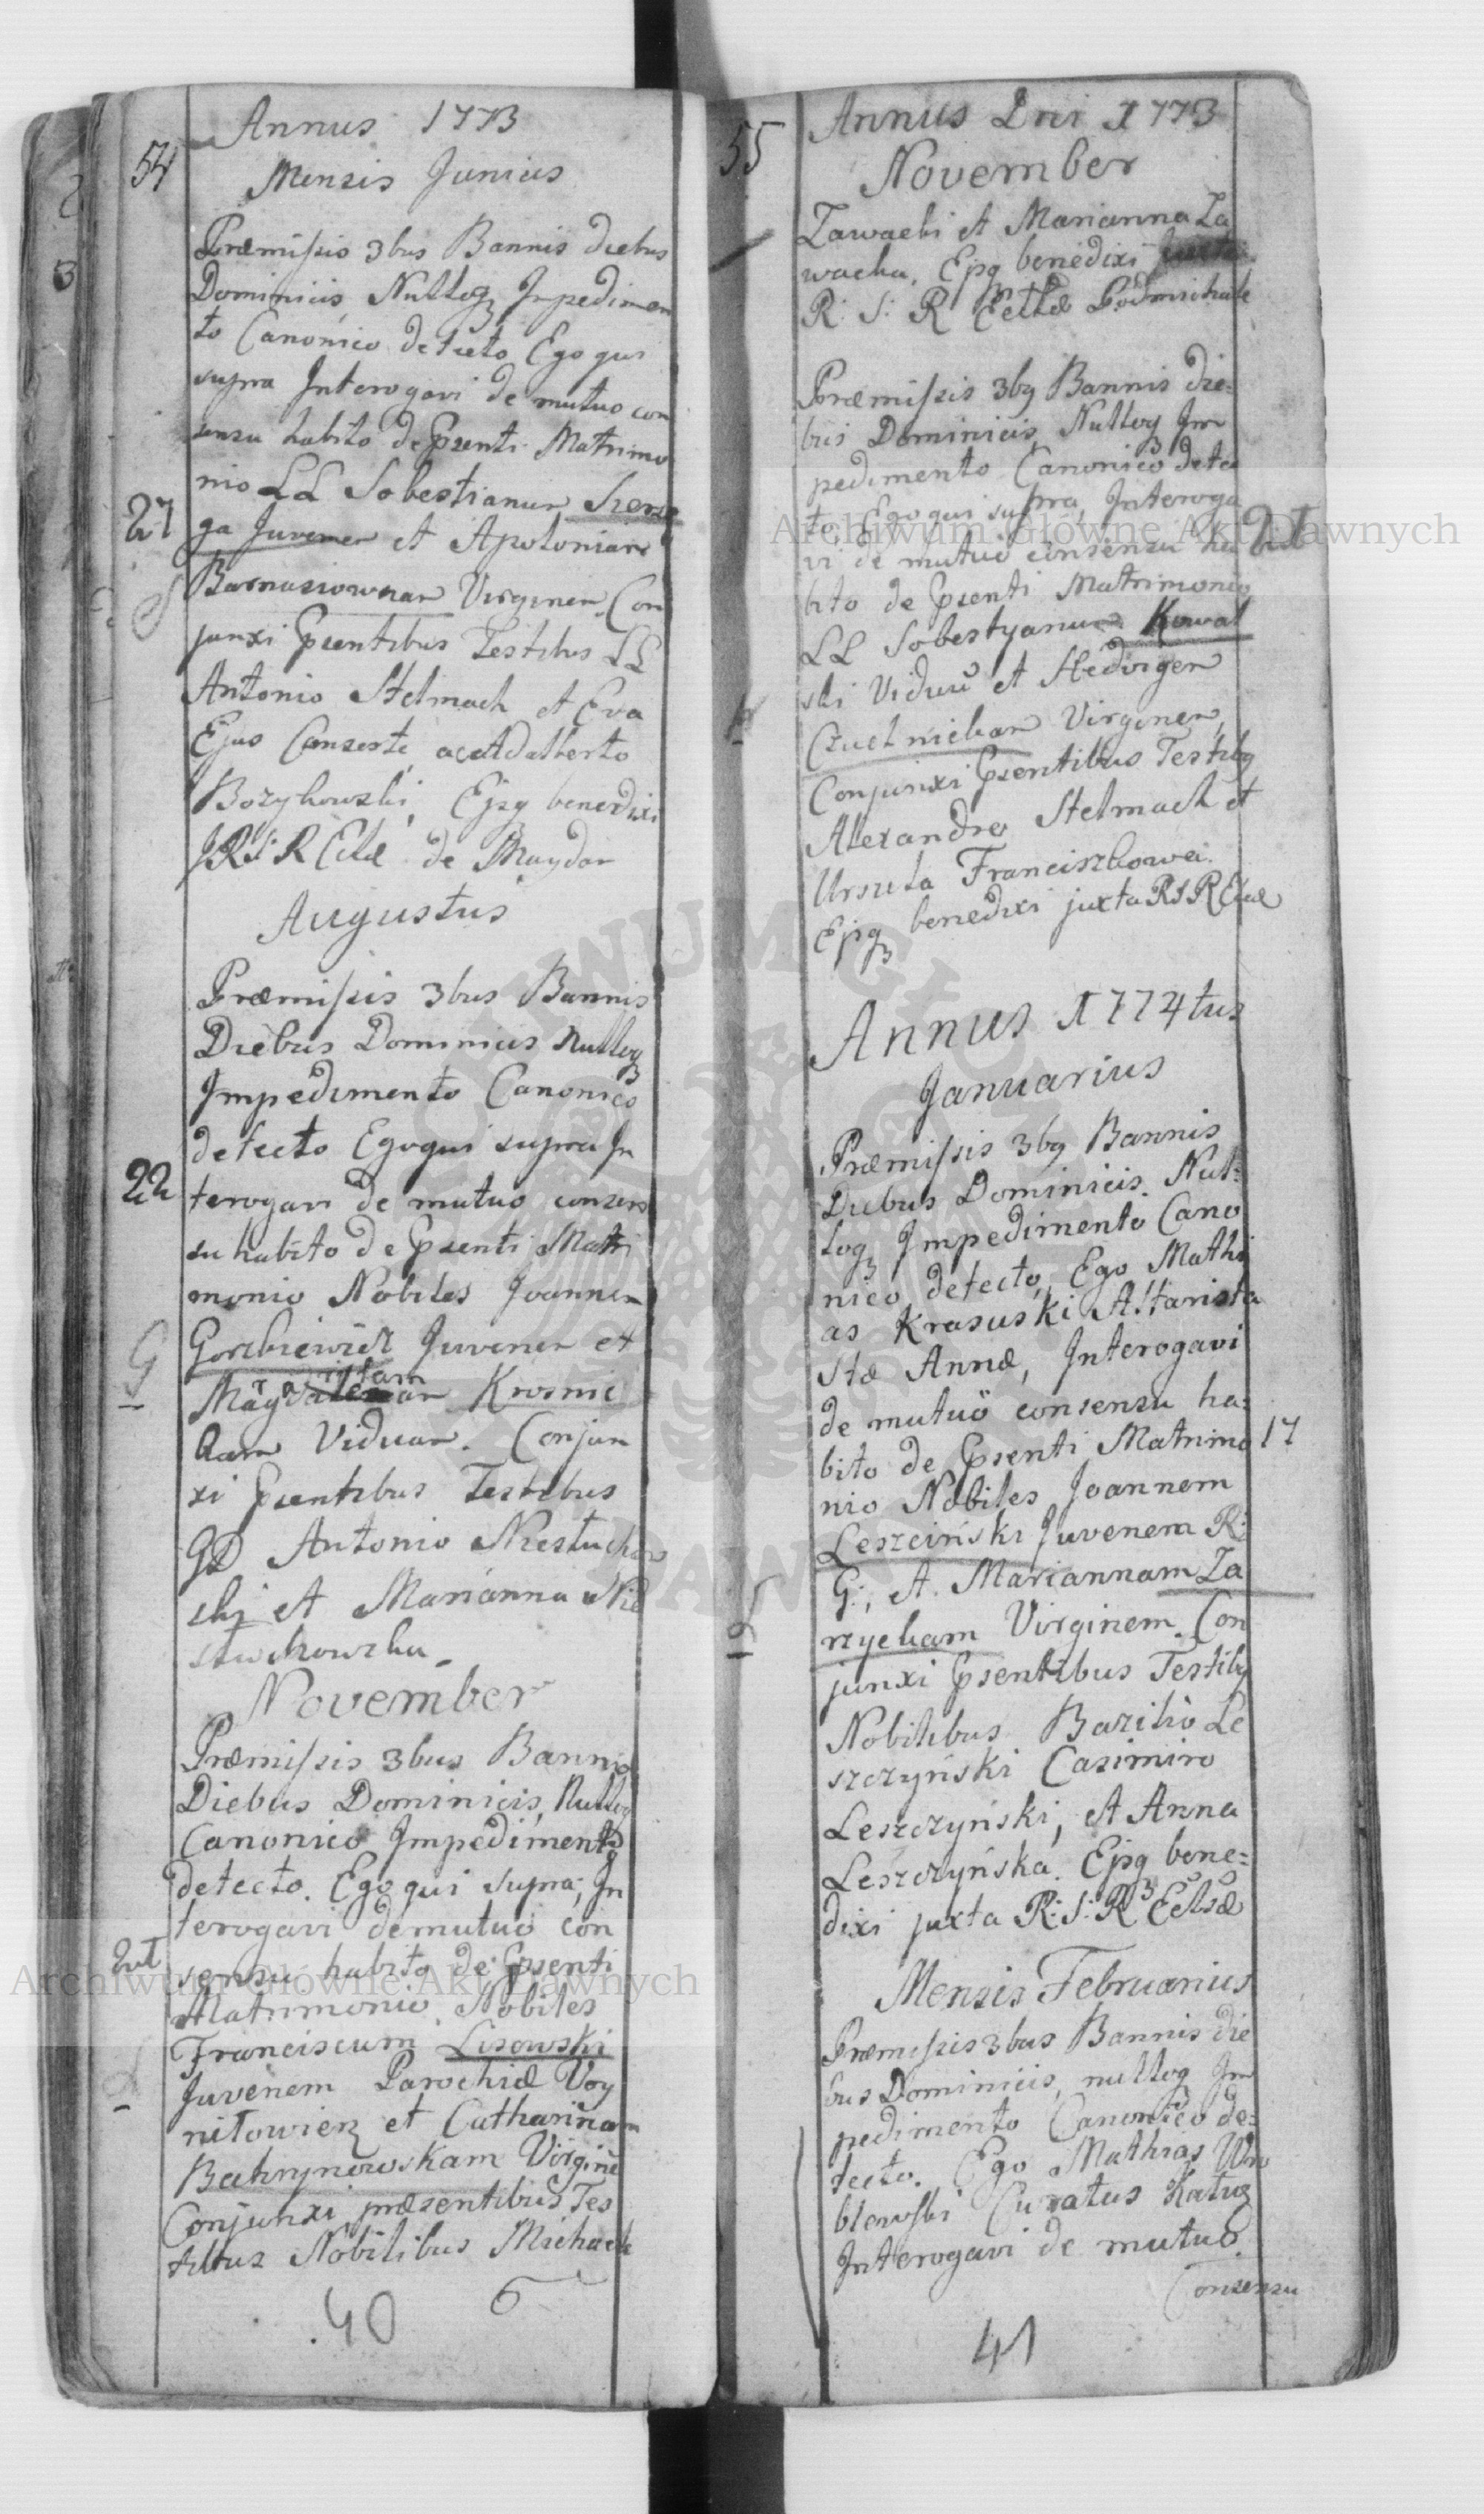 Annus 1773
54
Mensis Junius
Præmissis 3bus Bannis diebus
Dominicis, Nulloq3 Impedimen
to Canonico detecto Ego qui
supra Interogavi de mutuo con
sensu habito de Psenti Matrimo
nio LL Sobestianum Szerze
27
ga Juvenem et Apoloniam
Barnasiownam Virginem. Con
junxi Psentibus Testibus LL
Antonio Stelmach et Eva
Ejus Conserte, ac Adalberto
Bozykowski, Ejsq benedixi
J R: S: R Eclæ de Maydan
Augustus
Præmissis 3bus Bannis
Diebus Dominicis Nulloq3
Impedimento Canonico
detecto Ego qui supra In
22
terogavi de mutuo consen
su habito de Psenti Matri
monio Nobiles Joannem
Gorzkiewicz Juvenem et
G
ritam
Krosnic
kam Viduam. Conjun
xi Psentibus Testibus
GD Antonio Niestucho
ski et Marianna Nie
stuchowska
November
Præmissis 3bus Bannis
Diebus Dominicis, Nulloq
Canonico Impedimento
detecto. Ego qui supra, In
terogavi de mutuo con
21
sensu habito de Psenti
Matrimonio Nobiles
Franciscum Lisowski
Juvenem Parochiæ Voy
niłowien et Catharinam
Bakrynowskam Virginē
Conjunxi præsentibus Tes
tibus Nobilibus Michaele
40
6
55
Annus Dni 1773
November
Zawacki et Marianna Za
wacka, Ejsq benedixi
R: S: R Eccllæ Podmichale
Præmissis 3bq Bannis die=
bus Dominicis, Nulloq Im
pedimento Canonico dete
to Ego qui supra, Interoga
21
vi de mutuo consensu ha
bito de Psenti Matrimonio
LL Sobestyanum Kowal
ski Viduū et Hedvigem
K
Czuchnickam Virginem,
Conjunxi Psentibus Testibq
Alexandro Stelmach et
Ursula Franciszkowa.
Ejsq3 benedixi juxta R S R Eclæ
Annus 1774tus
Januarius
Præmissis 3bq Bannis
Diebus Dominicis. Nul=
loq3 Impedimento Cano
nico detecto, Ego Mathi
as Krasuski Altarista
Stæ Annæ, Interogavi
de mutuo consensu ha=
bito de Psenti Matrimo
17
nio Nobiles Joannem
Leszciński Juvenem R:
G:, et Mariannam Za
rzyckam Virginem. Con
junxi Psentibus Testibq
Nobilibus Bazilio Le
szczyński Casimiro
Leszczyński, et Anna
Leszczyńska. Ejsq bene=
dixi juxta R: S: R Eclsæ
Mensis Februarius
Præmissis 3bus Bannis die
bus Dominicis, nulloq Im
pedimento Canonico de=
tecto. Ego Mathias Wro
blewski Curatus Katuz
Interogavi de mutuo
Consensu
41
Archiwum Główne Akt Dawnych
Archiwum Główne Akt Dawnych